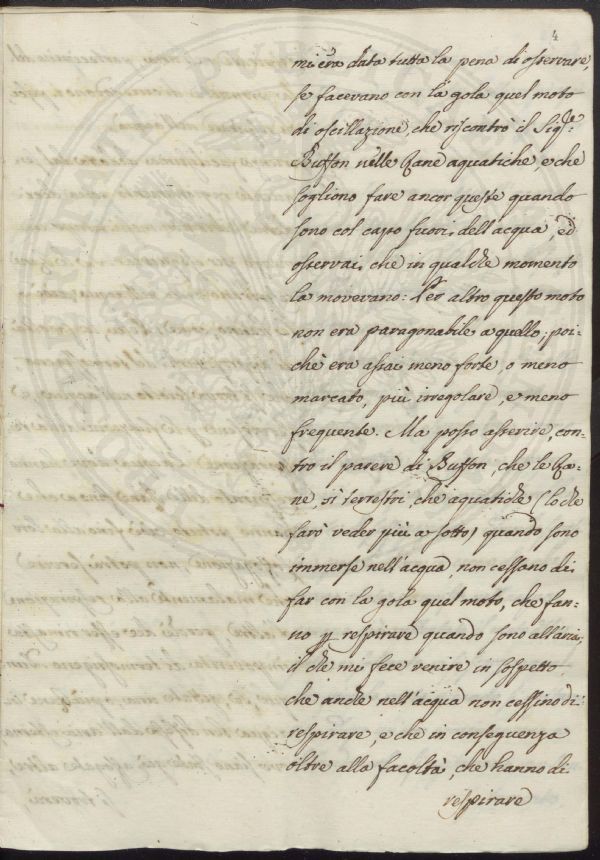 4
mi era data tutta la pena di osservare,
se facevano con la gola quel moto
di oscillazione, che riscontrò il Sigre:
Buffon nelle Rane aquatiche, e che
sogliono fare ancor queste quando
sono col capo fuori dell'acqua, ed
osservai, che in qualche momento
la movevano: Per altro questo moto
non era paragonabile a quello; poi-
chè era assai meno forte, o meno
marcato, più irregolare, e meno
frequente. Ma posso asserire, con-
tro il parere di Buffon, che le Ra-
ne, sì terrestri, che aquatiche (loche
farò veder più a sotto) quando sono
immerse nell'acqua, non cessano di
far con la gola quel moto, che fan-
no p respirare quando sono all'aria;
il che mi fece venire in sospetto
che anche nell'acqua non cessino di
respirare, e che in conseguenza
oltre alla facoltà, che hanno di
respirare